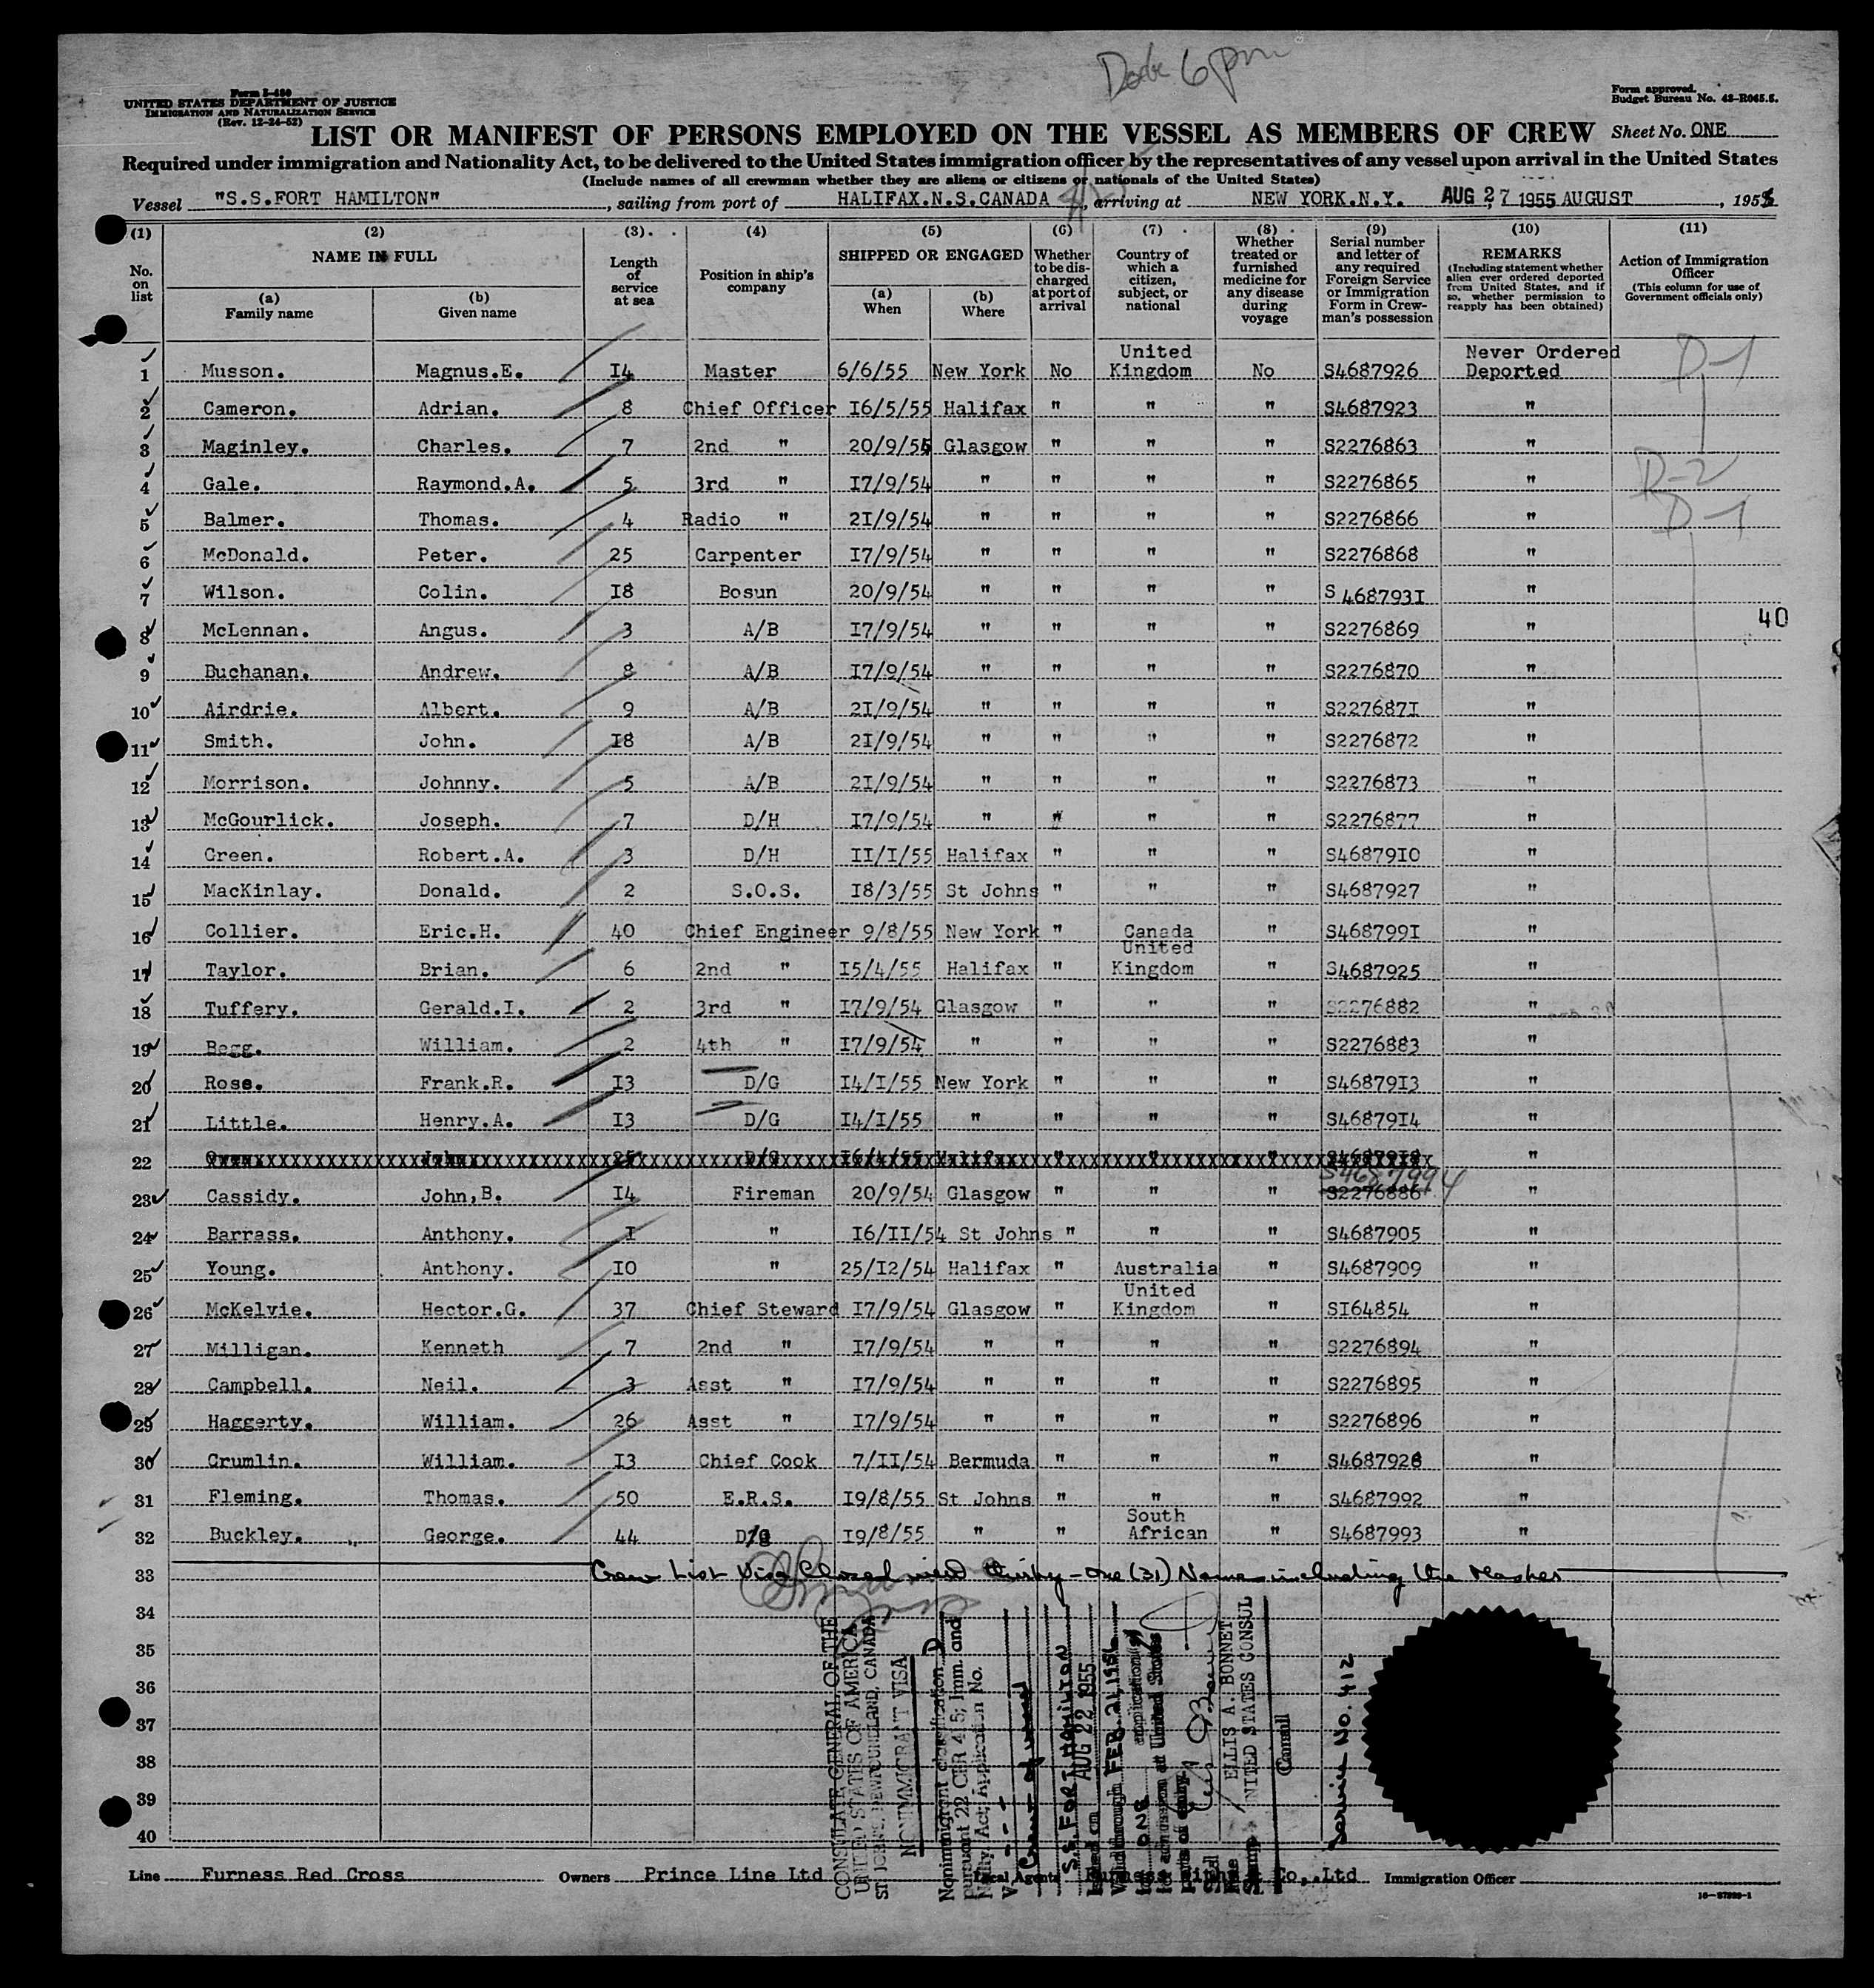 Dock 6 pm
Form I-480
UNITED STATES DEPARTMENT OF JUSTICE
IMMIGRATION AND NATURALIZATION SERVICE
(Rev. 12-24-52)
Form approved.
Budget Bureau No. 43-R065.5.
LIST OR MANIFEST OF PERSONS EMPLOYED ON THE VESSEL AS MEMBERS OF CREW Sheet No. ONE
Required under immigration and Nationality Act, to be delivered to the United States immigration officer by the representatives of any vessel upon arrival in the United States
(Include names of all crewman whether they are aliens or citizens or nationals of the United States)
Vessel "S.S.FORT HAMILTON", sailing from port of HALIFAX.N.S.CANADA, arriving at NEW YORK.N.Y. AUG 27 1955 AUGUST, 1955
(1) No. on list
(2) NAME IN FULL (a) Family name (b) Given name
(3) Length of service at sea
(4) Position in ship's company
(5) SHIPPED OR ENGAGED (a) When (b) Where
(6) Whether to be discharged at port of arrival
(7) Country of which a citizen, subject, or national
(8) Whether treated or furnished medicine for any disease during voyage
(9) Serial number and letter of any required Foreign Service or Immigration Form in Crewman's possession
(10) REMARKS (Including statement whether alien ever ordered deported from United States, and if so, whether permission to reapply has been obtained)
(11) Action of Immigration Officer (This column for use of Government officials only)
1 Musson. Magnus.E. I4 Master 6/6/55 New York No United Kingdom No S4687926 Never Ordered Deported D-1
2 Cameron. Adrian. 8 Chief Officer I6/5/55 Halifax " " " S4687923 "
3 Maginley. Charles. 7 2nd " 20/9/55 Glasgow " " " S2276863 "
4 Gale. Raymond.A. 5 3rd " I7/9/54 " " " " S2276865 " D-2
5 Balmer. Thomas. 4 Radio " 2I/9/54 " " " " S2276866 " D-1
6 McDonald. Peter. 25 Carpenter I7/9/54 " " " " S2276868 "
7 Wilson. Colin. I8 Bosun 20/9/54 " " " " S468793I "
40
8 McLennan. Angus. 3 A/B I7/9/54 " " " " S2276869 "
9 Buchanan. Andrew. 8 A/B I7/9/54 " " " " S2276870 "
10 Airdrie. Albert. 9 A/B 2I/9/54 " " " " S227687I "
11 Smith. John. I8 A/B 2I/9/54 " " " " S2276872 "
12 Morrison. Johnny. 5 A/B 2I/9/54 " " " " S2276873 "
13 McGourlick. Joseph. 7 D/H I7/9/54 " " " " S2276877 "
14 Green. Robert.A. 3 D/H II/I/55 Halifax " " " S46879I0 "
15 MacKinlay. Donald. 2 S.O.S. I8/3/55 St Johns " " " S4687927 "
16 Collier. Eric.H. 40 Chief Engineer 9/8/55 New York " Canada " S468799I "
17 Taylor. Brian. 6 2nd " I5/4/55 Halifax " United Kingdom " S4687925 "
18 Tuffery. Gerald.I. 2 3rd " I7/9/54 Glasgow " " " S2276882 "
19 Begg. William. 2 4th " I7/9/54 " " " " S2276883 "
20 Rose. Frank.R. I3 D/G I4/I/55 New York " " " S46879I3 "
21 Little. Henry.A. I3 D/G I4/I/55 " " " " S46879I4 "
22 John. 25 D/G I6/4/55 Halifax " " "
S4687994
23 Cassidy. John,B. I4 Fireman 20/9/54 Glasgow " " " S2276886 "
24 Barrass. Anthony. I " I6/II/54 St Johns " " " S4687905 "
25 Young. Anthony. I0 " 25/I2/54 Halifax " Australia " S4687909 "
26 McKelvie. Hector.G. 37 Chief Steward I7/9/54 Glasgow " United Kingdom " SI64854 "
27 Milligan. Kenneth 7 2nd " I7/9/54 " " " " S2276894 "
28 Campbell. Neil. 3 Asst " I7/9/54 " " " " S2276895 "
29 Haggerty. William. 26 Asst " I7/9/54 " " " " S2276896 "
30 Crumlin. William. I3 Chief Cook 7/II/54 Bermuda " " " S4687928 "
31 Fleming. Thomas. 50 E.R.S. I9/8/55 St Johns " " " S4687992 "
32 Buckley. George. 44 D/G I9/8/55 " " South African " S4687993 "
33 Crew List Visa Closed with thirty-one (31) Names including the Master
34
35
36
37
38
39
40
CONSULATE GENERAL OF THE
UNITED STATES OF AMERICA
ST JOHNS, NEWFOUNDLAND, CANADA
NONIMMIGRANT VISA
Nonimmigrant classification D
pursuant 22 CFR 41.5; Imm. and
Nat'lty Act; Application No.
V. - - -
Crew of vessel
S.S. FORT HAMILTON
Issued on AUG 22 1955
Valid through FEB 21, 1956
for ONE application(s)
for admission at United States
ports of entry.
ELLIS A. BONNET
UNITED STATES CONSUL
Seal
Fee
Stamp
(Consul)
Service No. 412
Line Furness Red Cross Owners Prince Line Ltd Local Agents Furness Withy & Co,.Ltd Immigration Officer